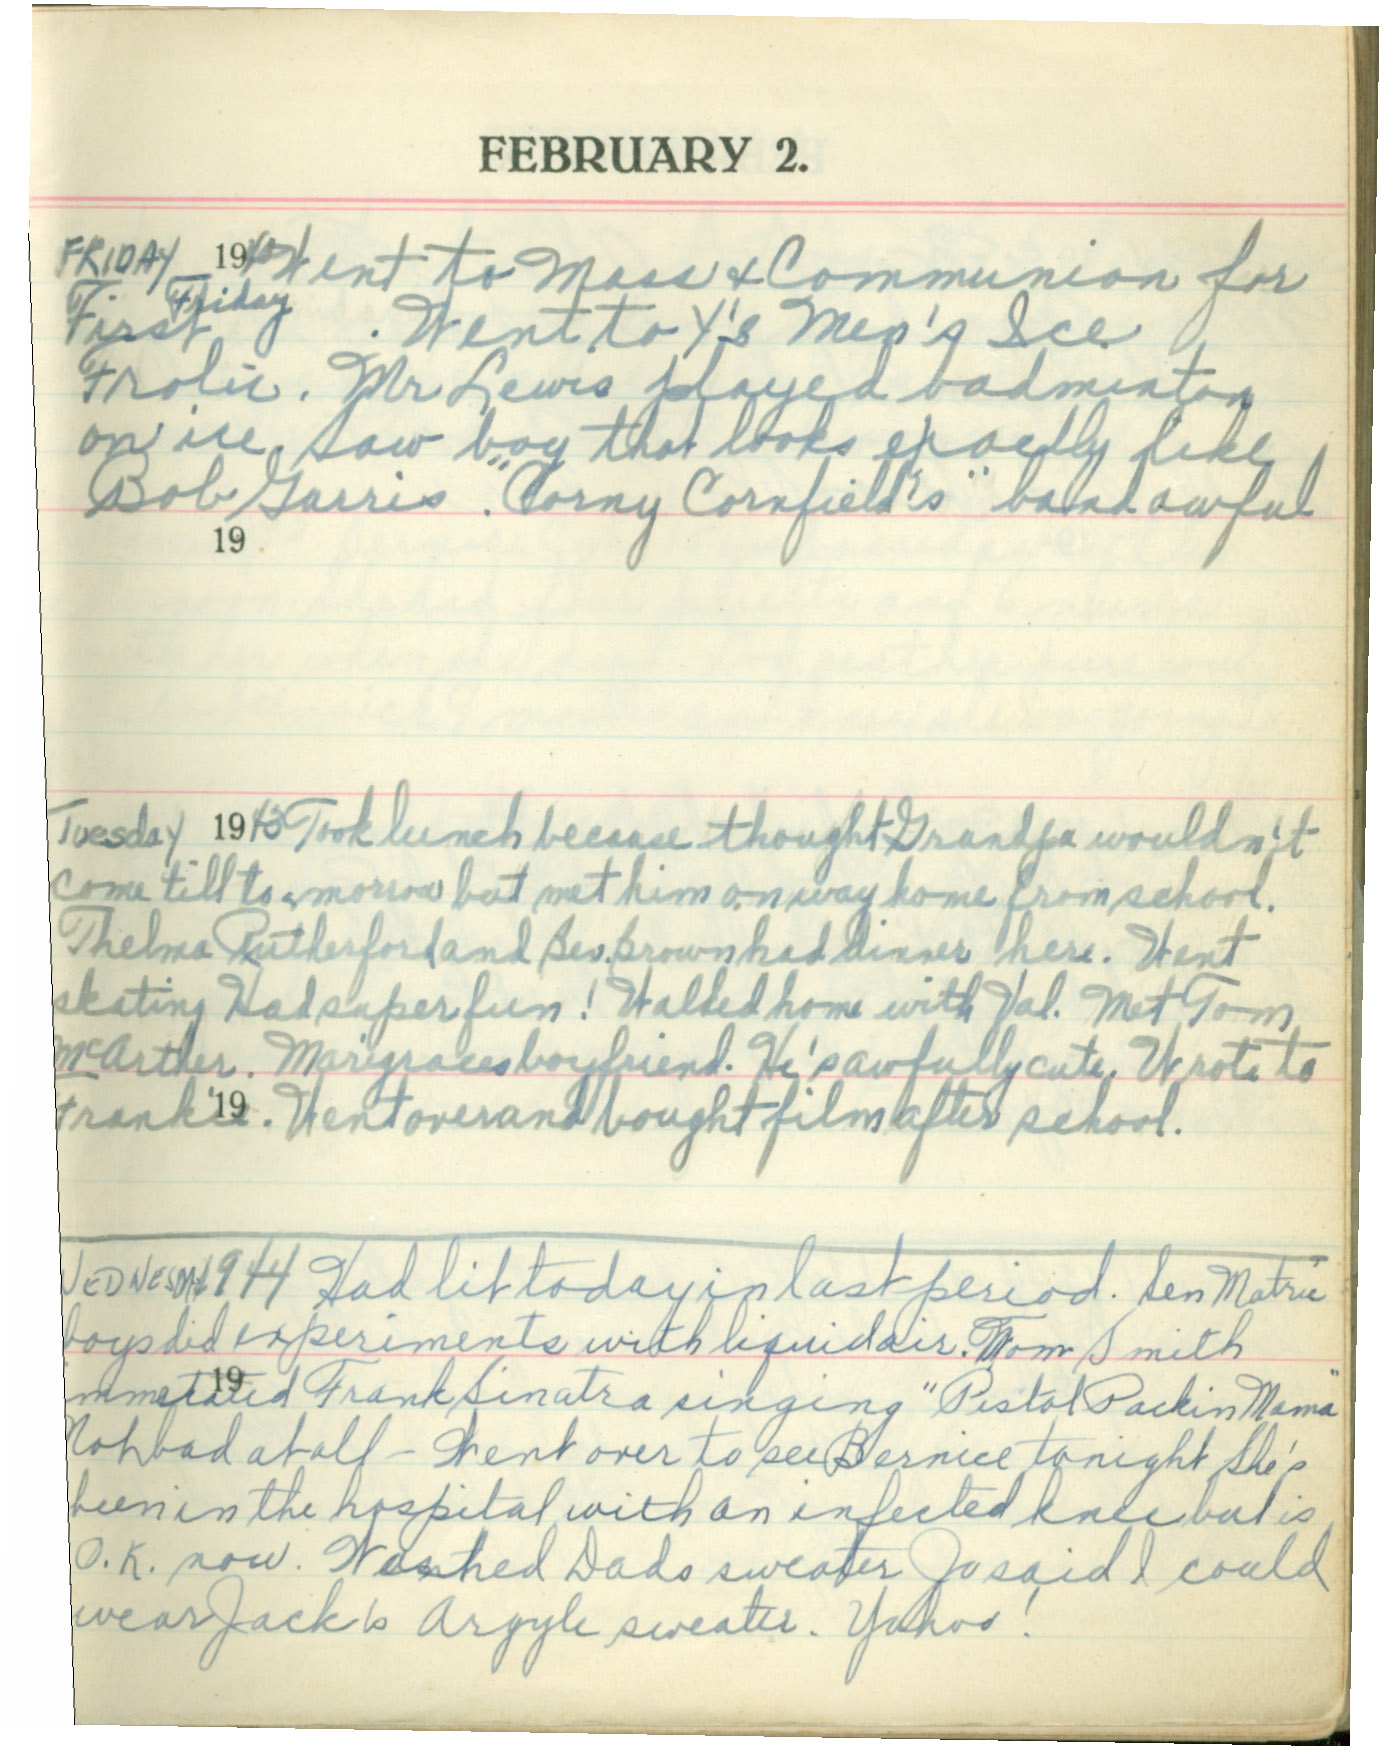 FEBRUARY 2.
FRIDAY 1940 Went to Mass & Communion for
First Friday. Went to Y's Men's Ice
Frolic. Mr Lewis played badminton
on ice. Saw boy that looks exactly like
Bob Garris. "Corny Cornfield's" band awful
19
Tuesday 1943 Took lunch because thought Grandpa wouldn't
come till to-morrow but met him on way home from school.
Thelma Rutherford and Bev. Brown had dinner here. Went
skating Had super fun! Walked home with Val. Met Tom
McArther. Marigraces boyfriend. He's awfully cute. Wrote to
Frankie. Went over and bought film after school.
19
WEDNESDAY 1944 Had lit today in last period. Sen Matric
boys did experiments with liquid air. Tom Smith
immetated Frank Sinatra singing "Pistol Packin Mama"
19
Not bad at all – Went over to see Bernice tonight She's
been in the hospital with an infected knee but is
O.K. now. Washed Dads sweater Jo said I could
wear Jack's Argyle sweater. Yahoo!